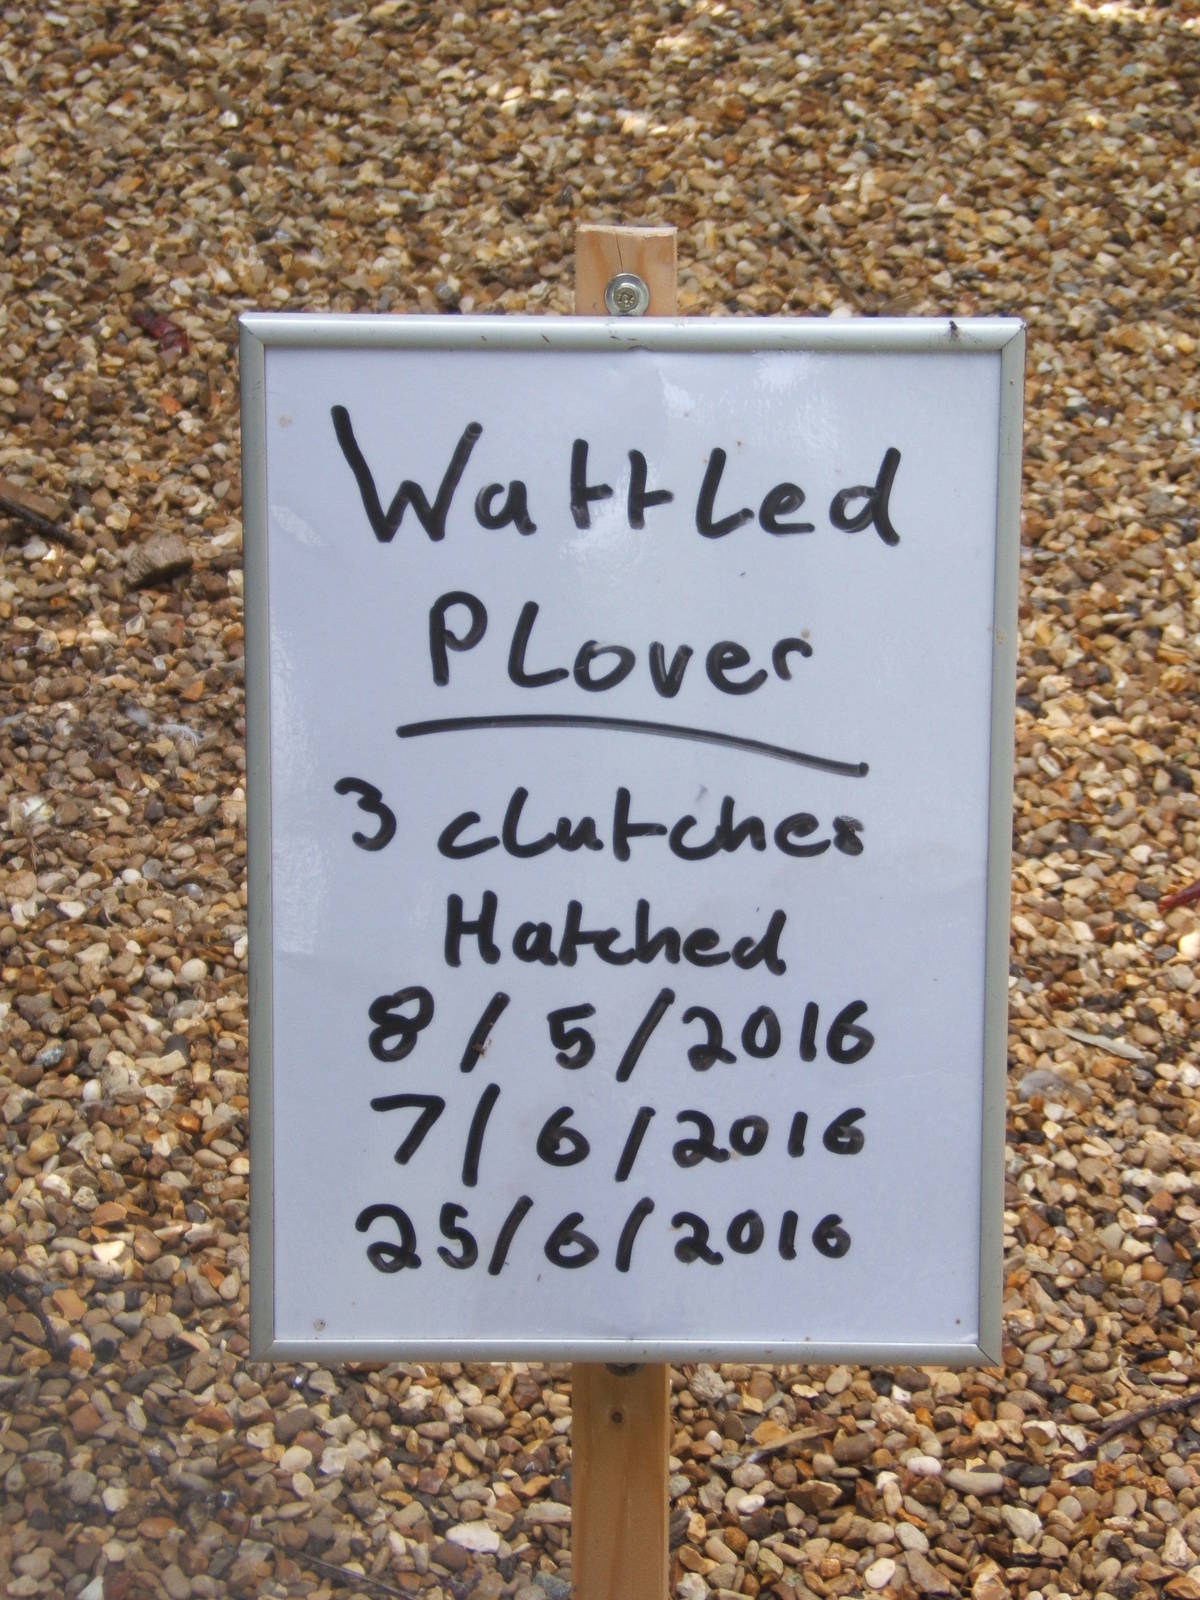 Wattled
Plover
3 clutches
Hatched
8/5/2016
7/6/2016
25/6/2016